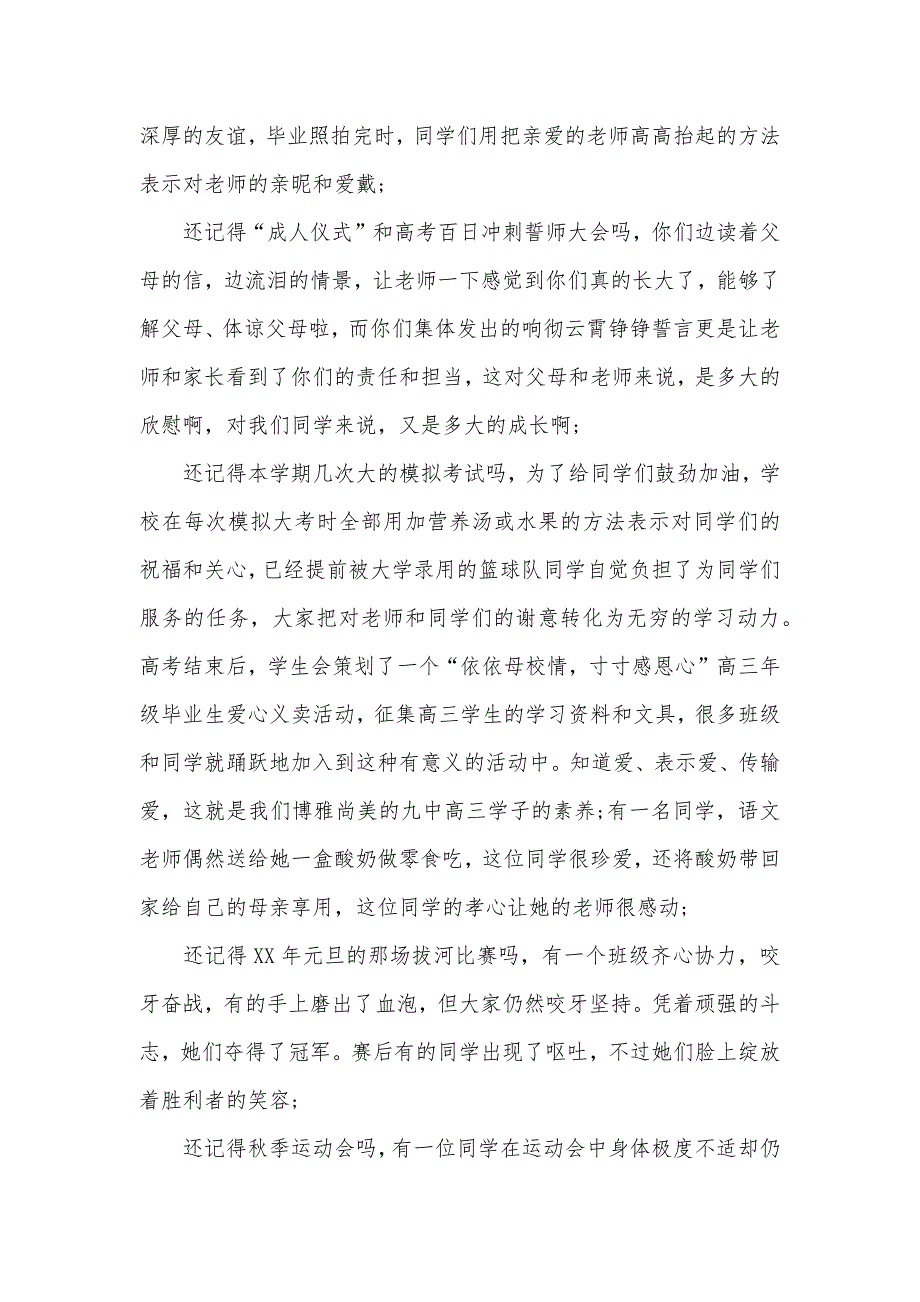 深厚的友谊，毕业照拍完时，同学们用把亲爱的老师高高抬起的方法
表示对老师的亲昵和爱戴;
还记得“成人仪式”和高考百日冲刺誓师大会吗，你们边读着父
母的信，边流泪的情景，让老师一下感觉到你们真的长大了，能够了
解父母、体谅父母啦，而你们集体发出的响彻云霄铮铮誓言更是让老
师和家长看到了你们的责任和担当，这对父母和老师来说，是多大的
欣慰啊，对我们同学来说，又是多大的成长啊;
还记得本学期几次大的模拟考试吗，为了给同学们鼓劲加油，学
校在每次模拟大考时全部用加营养汤或水果的方法表示对同学们的
祝福和关心，已经提前被大学录用的篮球队同学自觉负担了为同学们
服务的任务，大家把对老师和同学们的谢意转化为无穷的学习动力。
高考结束后，学生会策划了一个“依依母校情，寸寸感恩心”高三年
级毕业生爱心义卖活动，征集高三学生的学习资料和文具，很多班级
和同学就踊跃地加入到这种有意义的活动中。知道爱、表示爱、传输
爱，这就是我们博雅尚美的九中高三学子的素养;有一名同学，语文
老师偶然送给她一盒酸奶做零食吃，这位同学很珍爱，还将酸奶带回
家给自己的母亲享用，这位同学的孝心让她的老师很感动;
还记得 XX 年元旦的那场拔河比赛吗，有一个班级齐心协力，咬
牙奋战，有的手上磨出了血泡，但大家仍然咬牙坚持。凭着顽强的斗
志，她们夺得了冠军。赛后有的同学出现了呕吐，不过她们脸上绽放
着胜利者的笑容;
还记得秋季运动会吗，有一位同学在运动会中身体极度不适却仍